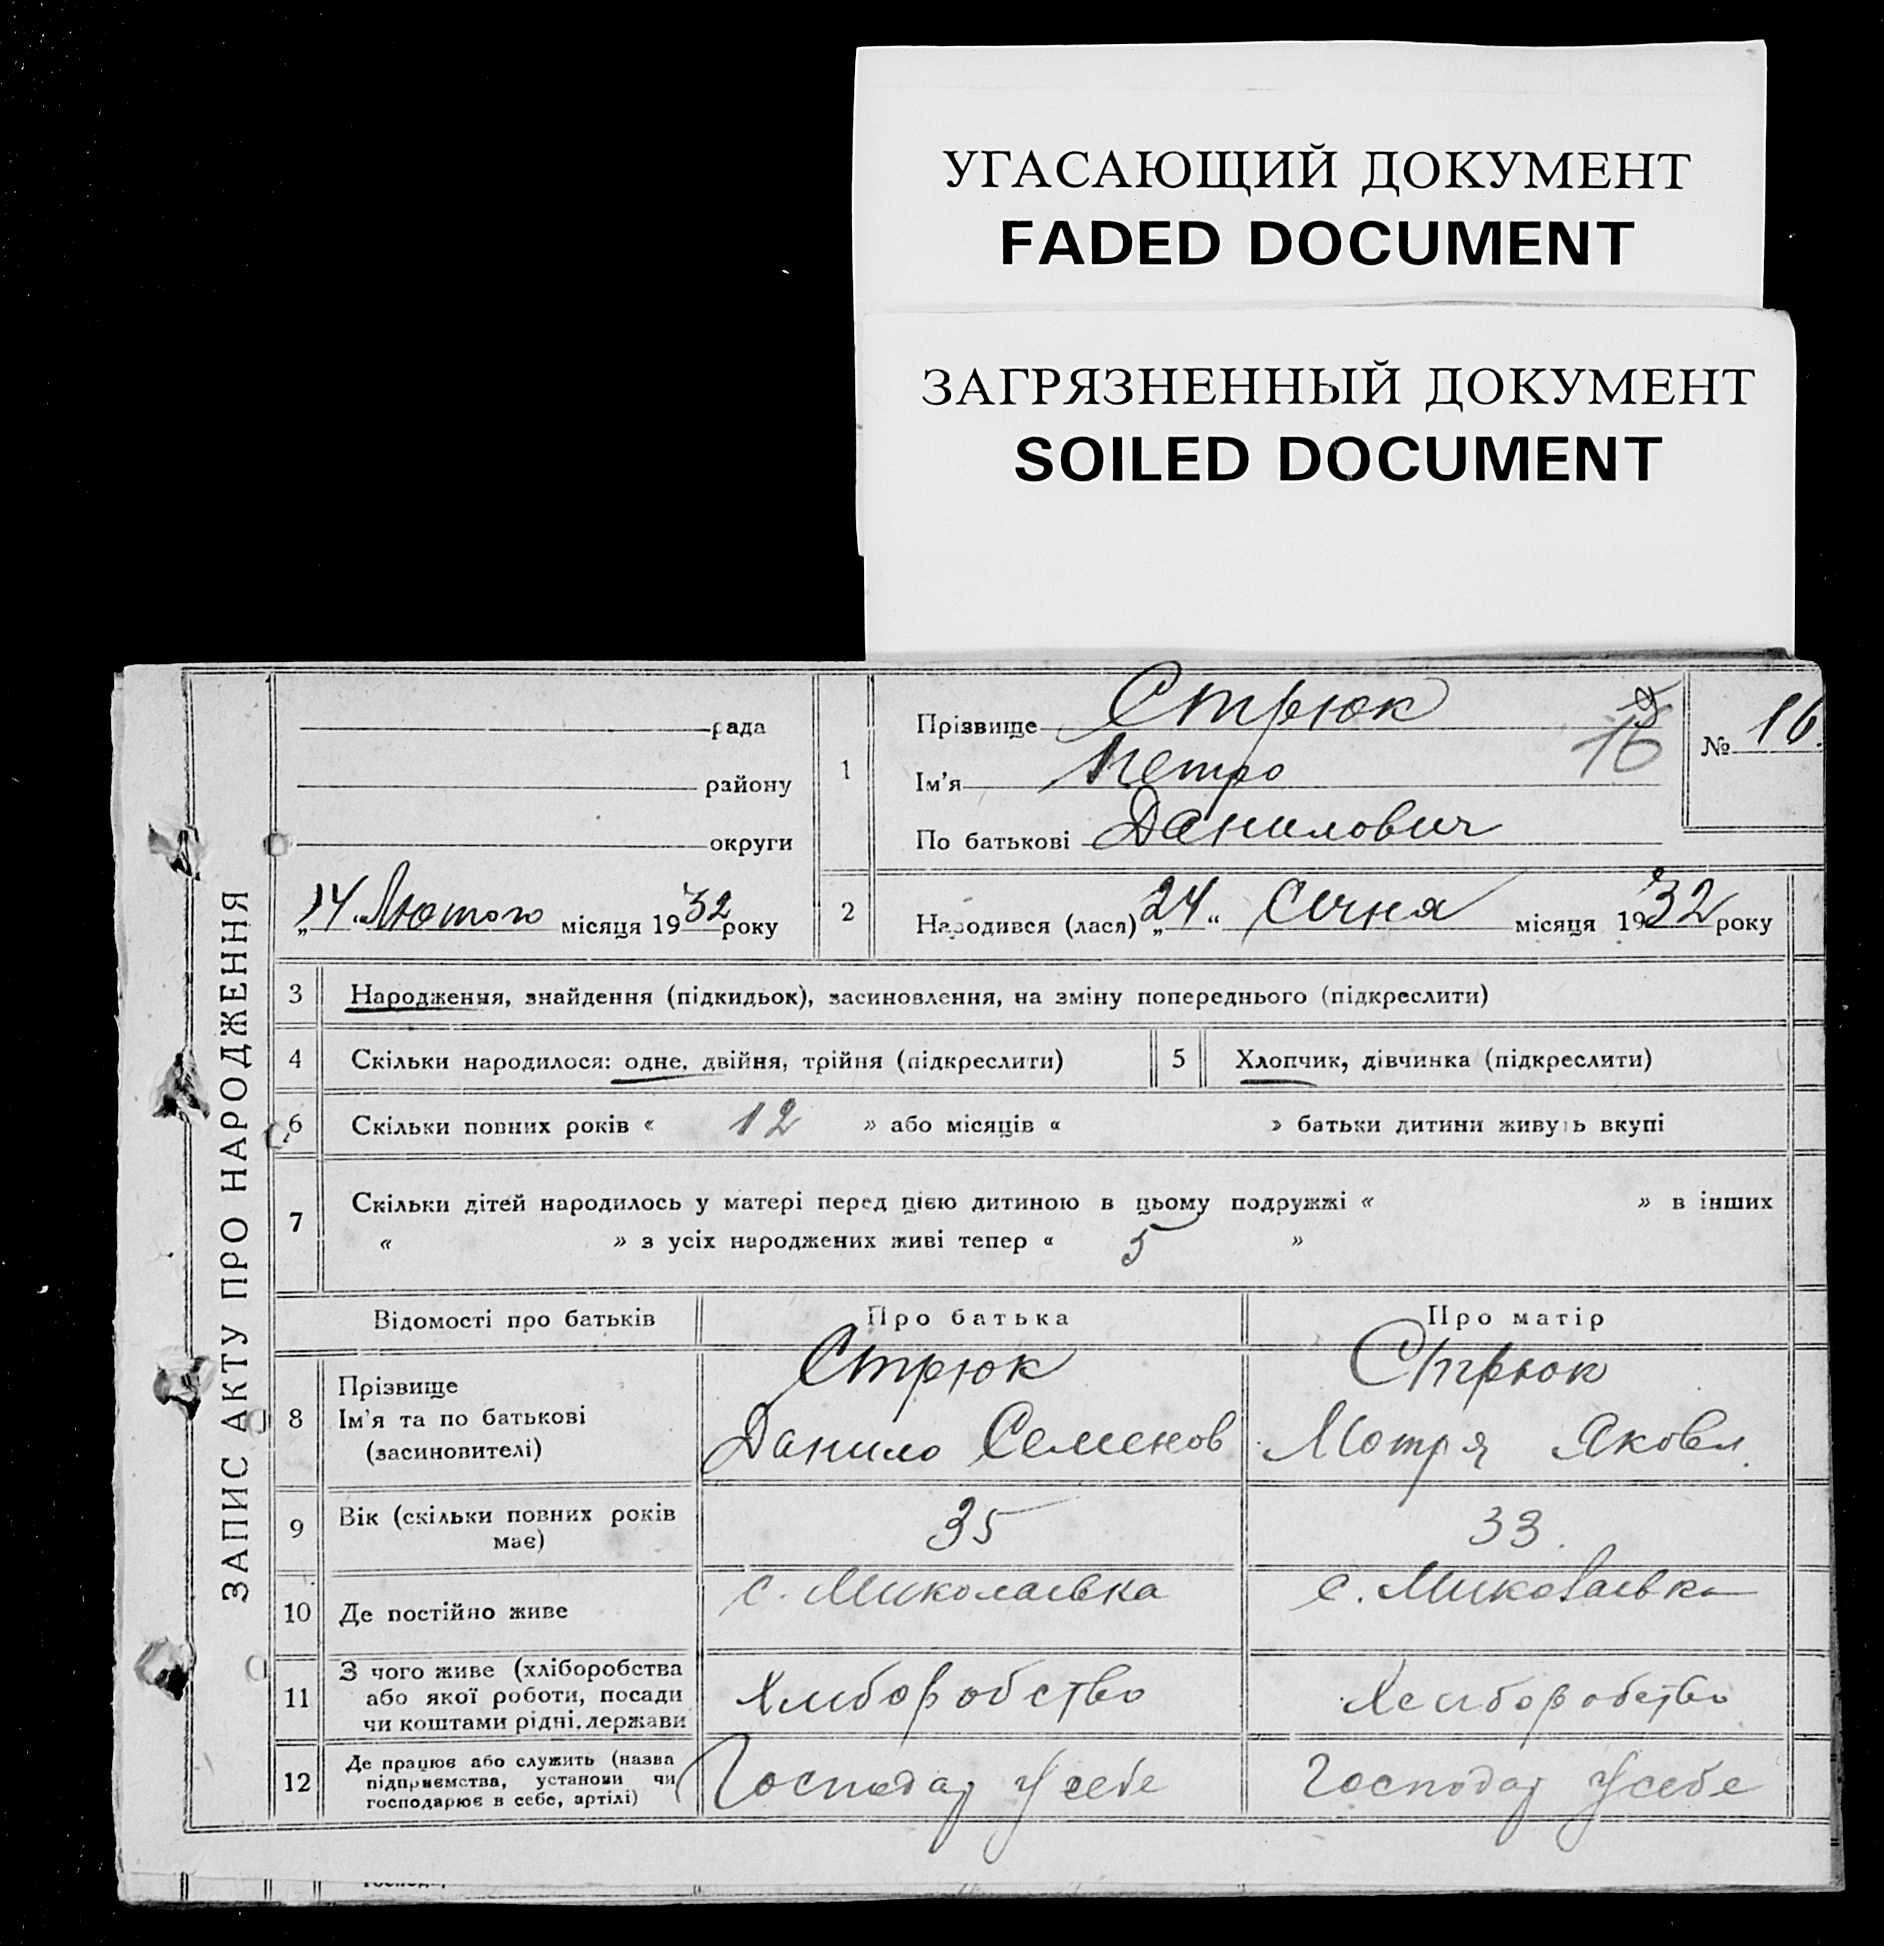 УГАСАЮЩИЙ ДОКУМЕНТ
FADED DOCUMENT
ЗАГРЯЗНЕННЫЙ ДОКУМЕНТ
SOILED DOCUMENT
ЗАПИС АКТУ ПРО НАРОДЖЕННЯ
рада
району
округи
„14“ Лютого місяця 1932 року
1
Прізвище Стрюк
Ім'я Петро
По батькові Данилович
16
№ 16.
2
Народився (лася) „24“ Січня місяця 1932 року
3 Народження, знайдення (підкидьок), засиновлення, на зміну попереднього (підкреслити)
4 Скільки народилося: одне, двійня, трійня (підкреслити)
5 Хлопчик, дівчинка (підкреслити)
6 Скільки повних років « 12 » або місяців « » батьки дитини живуть вкупі
7 Скільки дітей народилось у матері перед цією дитиною в цьому подружжі « » в інших
« » з усіх народжених живі тепер « 5 »
Відомості про батьків Про батька Про матір
8 Прізвище
Ім'я та по батькові
(засиновителі)
Стрюк
Данило Семенов
Стрюк
Мотря Яковл.
9 Вік (скільки повних років
має)
35
33.
10 Де постійно живе
с. Миколаівка
с. Миколаівка
11 З чого живе (хліборобства
або якої роботи, посади
чи коштами рідні, держави
Хлиборобство
Хлиборобство
12 Де працює або служить (назва
підприємства, установи чи
господарює в себе, артілі)
Господар у себе
Господар у себе